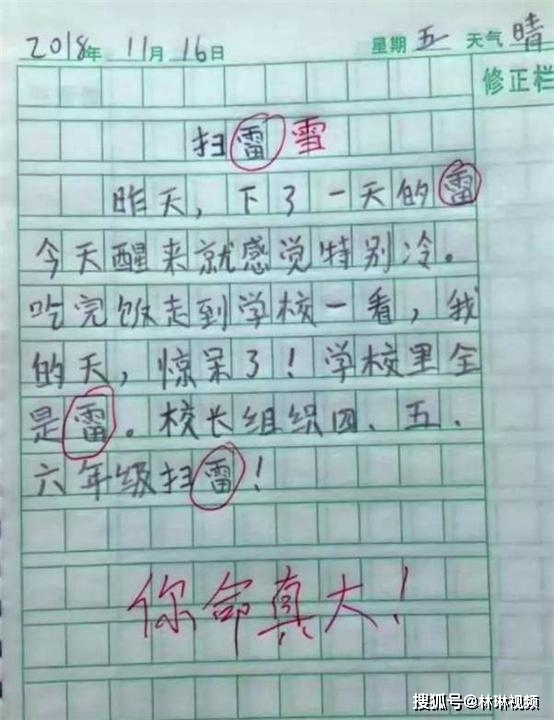 2018年 11月 16日 星期 五 天气 晴
修正栏
扫雷 雪
昨天，下了一天的雷
今天醒来就感觉特别冷。
吃完饭走到学校一看，我
的天，惊呆了！学校里全
是雷。校长组织四、五、
六年级扫雷！
你命真大！
搜狐号@林琳视频